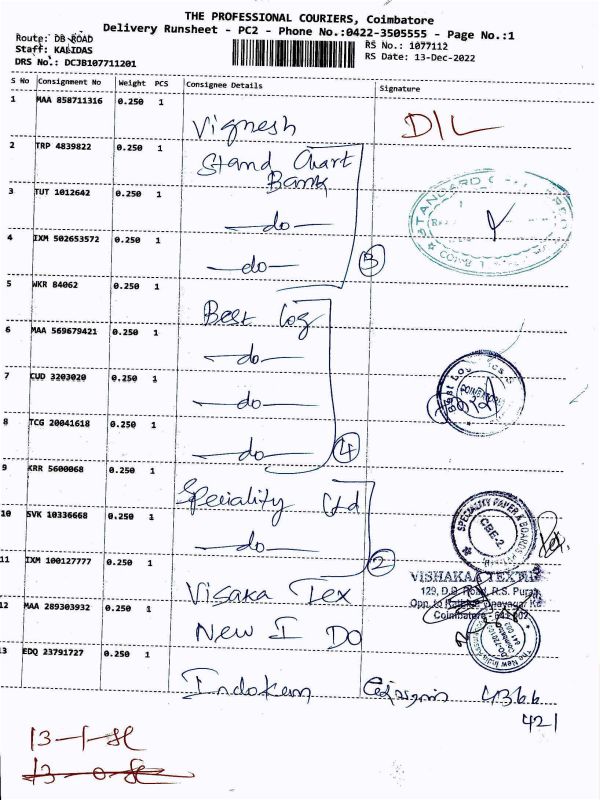 THE PROFESSIONAL COURIERS, Coimbatore
Delivery Runsheet - PC2 - Phone No.:0422-3505555 - Page No.:1
Route: DB ROAD
Staff: KALIDAS
DRS No.: DCJB107711201
RS No.: 1077112
RS Date: 13-Dec-2022
S No Consignment No Weight PCS Consignee Details Signature
1 MAA 858711316 0.250 1 Vignesh D/L
2 TRP 4839822 0.250 1 Stand Chart Bank
3 TUT 1012642 0.250 1 —do—
4 IXM 502653572 0.250 1 —do— 3
5 WKR 84062 0.250 1 Best Log
6 MAA 569679421 0.250 1 —do—
7 CUD 3203020 0.250 1 —do—
8 TCG 20041618 0.250 1 —do— 4
9 KRR 5600068 0.250 1 Speciality Ltd
SPECIALITY PAPER & BOARDS
CBE-2.
10 SVK 10336668 0.250 1 —do— 2
11 IXM 100127777 0.250 1 Visaka Tex
VISHAKAA TEXTILE
129, D.B. Road, R.S. Puram
Coimbatore - 641 002
12 MAA 289303932 0.250 1 New I DO
13 EDQ 23791727 0.250 1 Indokem 4366
421
13-1-SL
13-0-SL